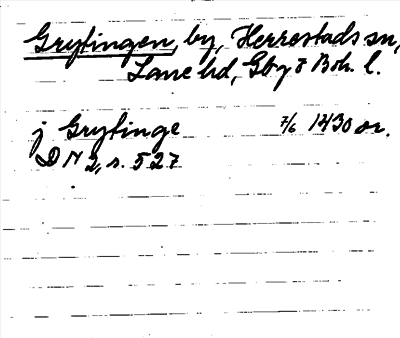 Grytingen, by, Herrestads sn,
Lane hd, Gbg o Boh. l.
j Grytinge 7/6 1430 or.
DN 2, s. 527